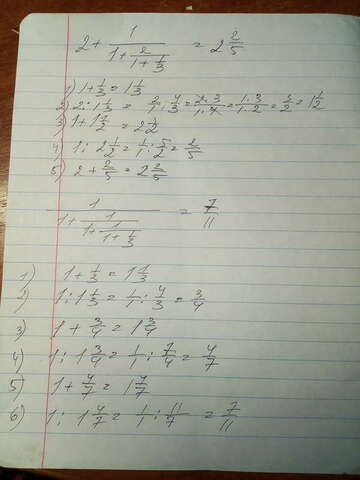 2 + 1/(1 + 2/(1 + 1/3)) = 2 2/5
1) 1 + 1/3 = 1 1/3
2) 2 : 1 1/3 = 2/1 : 4/3 = 2·3/1·4 = 1·3/1·2 = 3/2 = 1 1/2
3) 1 + 1 1/2 = 2 1/2
4) 1 : 2 1/2 = 1/1 : 5/2 = 2/5
5) 2 + 2/5 = 2 2/5
1/(1 + 1/(1 + 1/(1 + 1/3))) = 7/11
1) 1 + 1/3 = 1 1/3
2) 1 : 1 1/3 = 1/1 : 4/3 = 3/4
3) 1 + 3/4 = 1 3/4
4) 1 : 1 3/4 = 1/1 : 7/4 = 4/7
5) 1 + 4/7 = 1 4/7
6) 1 : 1 4/7 = 1/1 : 11/7 = 7/11